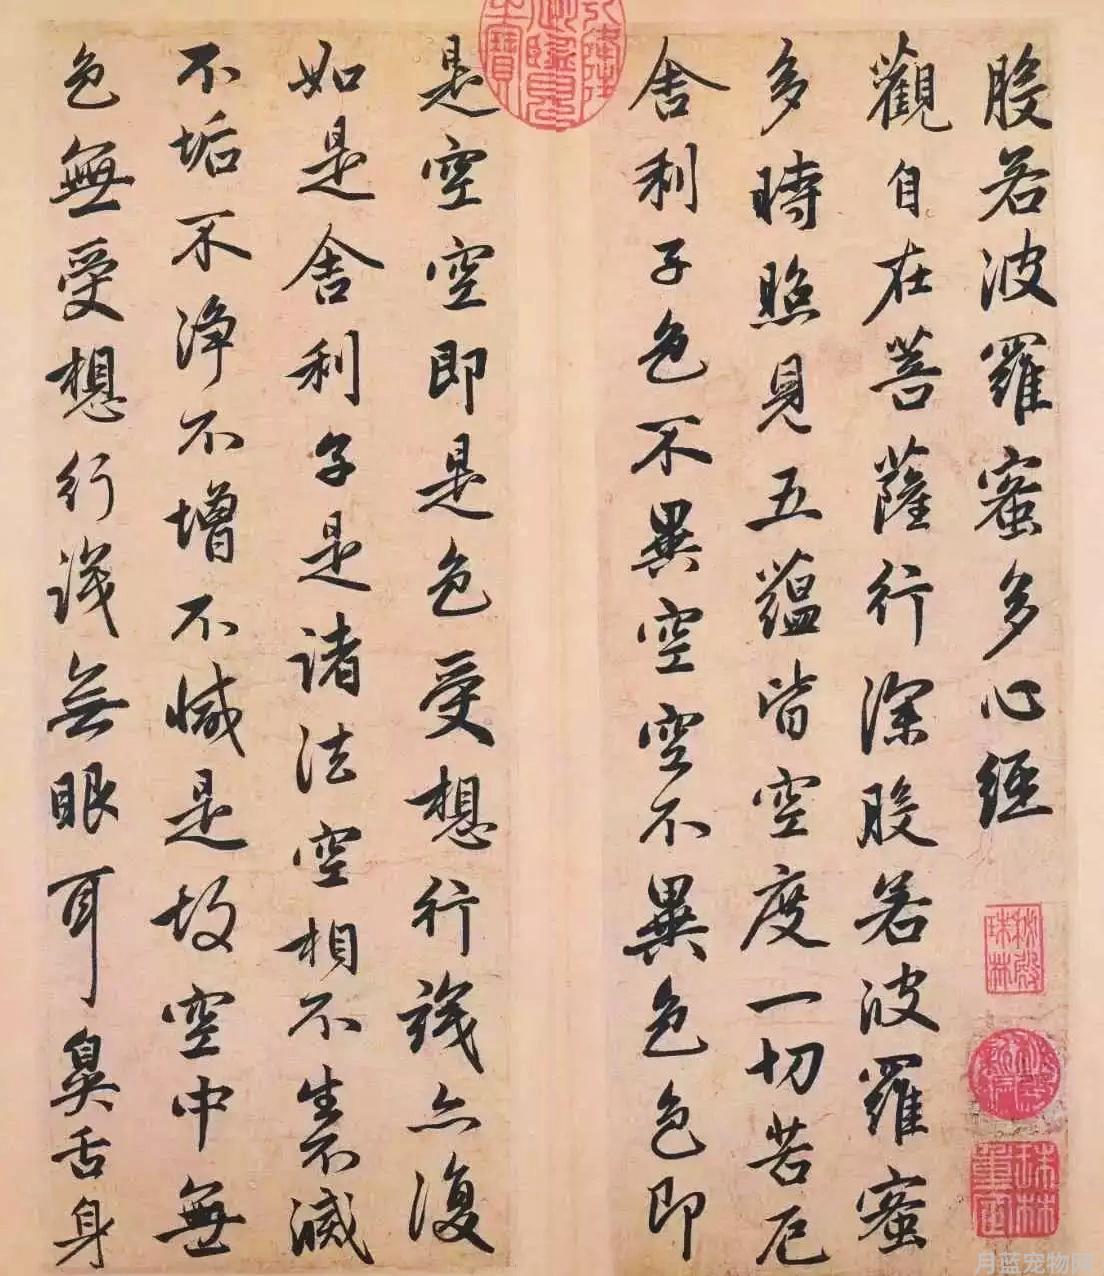 般若波羅蜜多心經
觀自在菩薩行深般若波羅蜜
多時照見五蘊皆空度一切苦厄
舍利子色不異空空不異色色即
是空空即是色受想行識亦復
如是舍利子是諸法空相不生不滅
不垢不淨不增不減是故空中無
色無受想行識無眼耳鼻舌身
秘殿珠林
珠林重定
月蓝宠物网